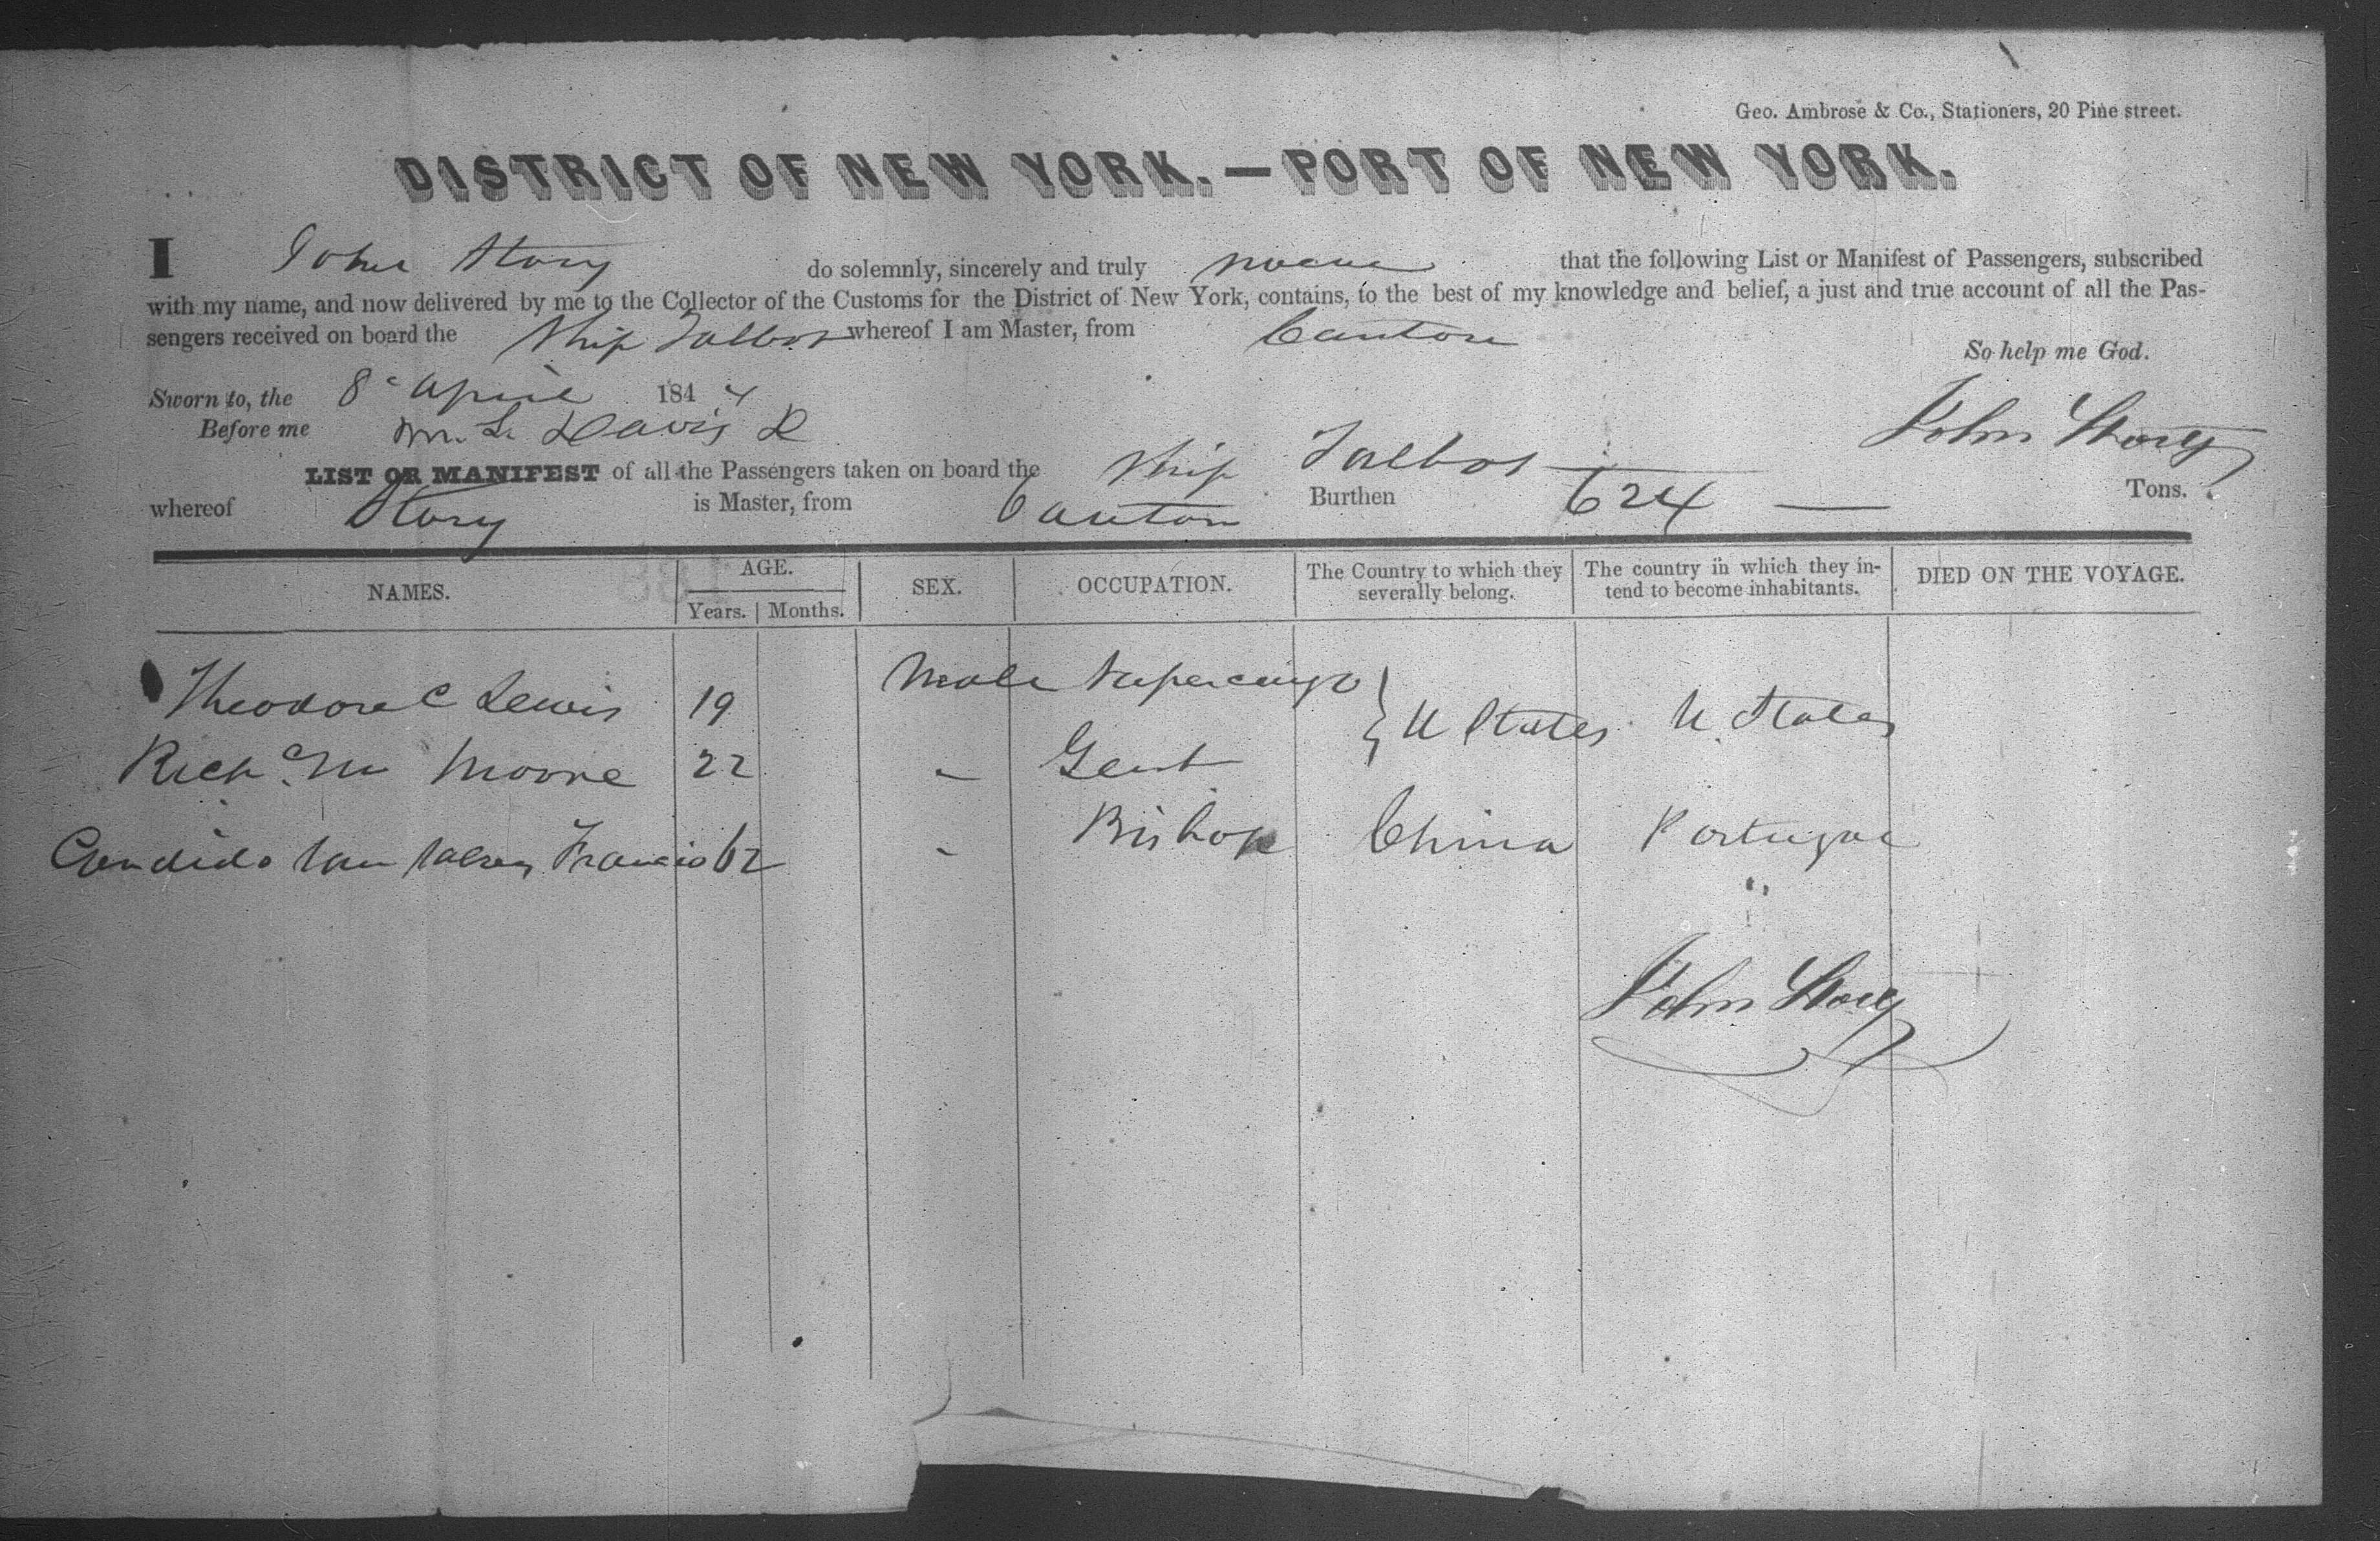 Geo. Ambrose & Co., Stationers, 20 Pine street.
DISTRICT OF NEW YORK.—PORT OF NEW YORK.
I John Story do solemnly, sincerely and truly swear that the following List or Manifest of Passengers, subscribed
with my name, and now delivered by me to the Collector of the Customs for the District of New York, contains, to the best of my knowledge and belief, a just and true account of all the Pas-
sengers received on board the Ship Talbot whereof I am Master, from Canton
So help me God.
Sworn to, the 8 April 1844
Before me Davis John Story
LIST OR MANIFEST of all the Passengers taken on board the Ship Talbot
whereof Story is Master, from Canton Burthen 624 — Tons.
NAMES. AGE. Years. Months. SEX. OCCUPATION. The Country to which they severally belong. The country in which they in-tend to become inhabitants. DIED ON THE VOYAGE.
Theodore C Lewis 19 Male Supercargo } U States U. States
Richd M Moore 22 " Gent
Candido Francis 62 " Bishop China Portugal
John Story